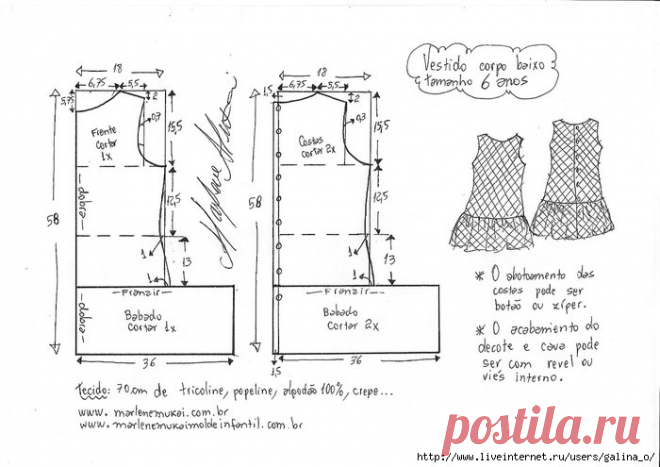 Vestido corpo baixo
tamanho 6 anos
18
6,75 5,5
5,75
2
0,7
15,5
Frente
cortar
1x
dobra
58
12,5
1
13
1
Franzir
dobra
Babado
cortar 1x
36
Marlene Mukai
18
6,75 5,5
1,5
2
0,3
15,5
Costas
cortar 2x
58
12,5
1
13
1
Franzir
Babado
Cortar 2x
1,5
36
* O abotoamento das
costas pode ser
botão ou zíper.
* O acabamento do
decote e cava pode
ser com revel ou
viés interno.
Tecido: 70cm de tricoline, popeline, algodão 100%, crepe...
www.marlenemukai.com.br
www.marlenemukaimoldeinfantil.com.br
postila.ru
http://www.liveinternet.ru/users/galina_o/